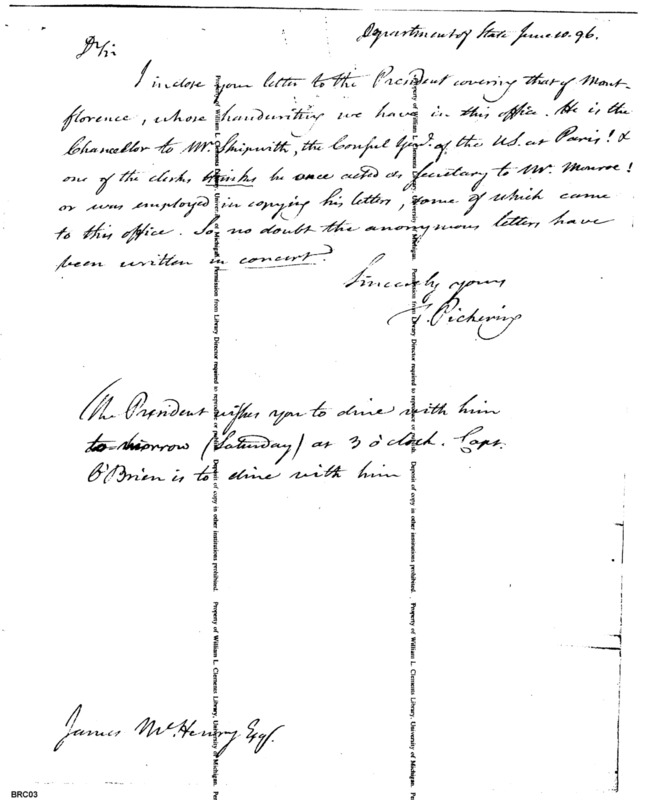 Department of State June 10. 96.
Dr Sir
I inclose your letter to the President covering that of Mont-
florence, whose handwriting we have in this office. He is the
Chancellor to Mr. Skipwith, the Consul Genl. of the U.S. at Paris! &
one of the clerks thinks he once acted as Secretary to Mr. Monroe!
or was employed in copying his letters, some of which came
to this office. So no doubt the anonymous letters have
been written in concert.
Sincerely yours
T. Pickering
The President wishes you to dine with him
to-morrow (Saturday) at 3 o'clock. Capt.
O'Brien is to dine with him
James McHenry Esqr.
Property of William L. Clements Library, University of Michigan. Permission from Library Director required to reproduce or publish. Deposit of copy in other institutions prohibited. Property of William L. Clements Library, University of Michigan. Per
Property of William L. Clements Library, University of Michigan. Permission from Library Director required to reproduce or publish. Deposit of copy in other institutions prohibited. Property of William L. Clements Library, University of Michigan. Per
BRC03